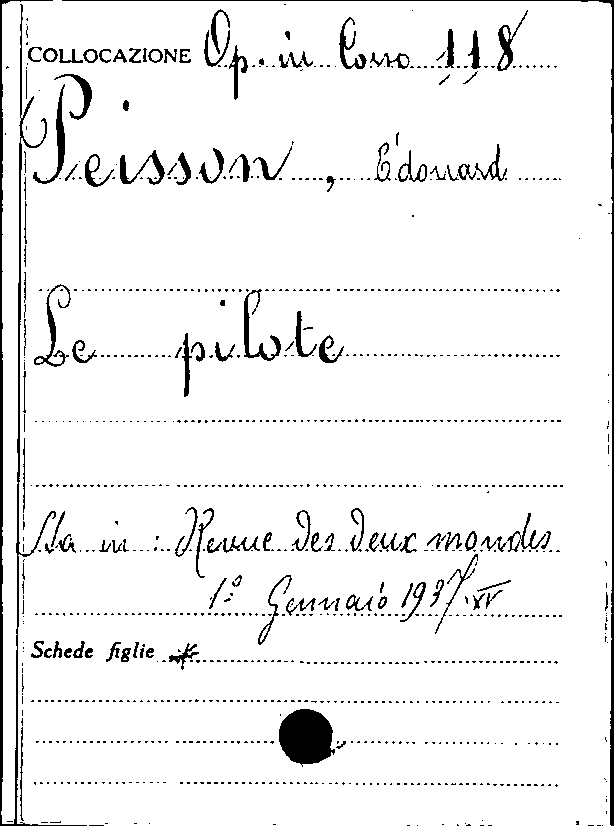 COLLOCAZIONE Op. in Corso 118
Peisson, Édouard
Le pilote
Sta in : Revue des deux mondes
1º Gennaio 1937.XV
Schede figlie